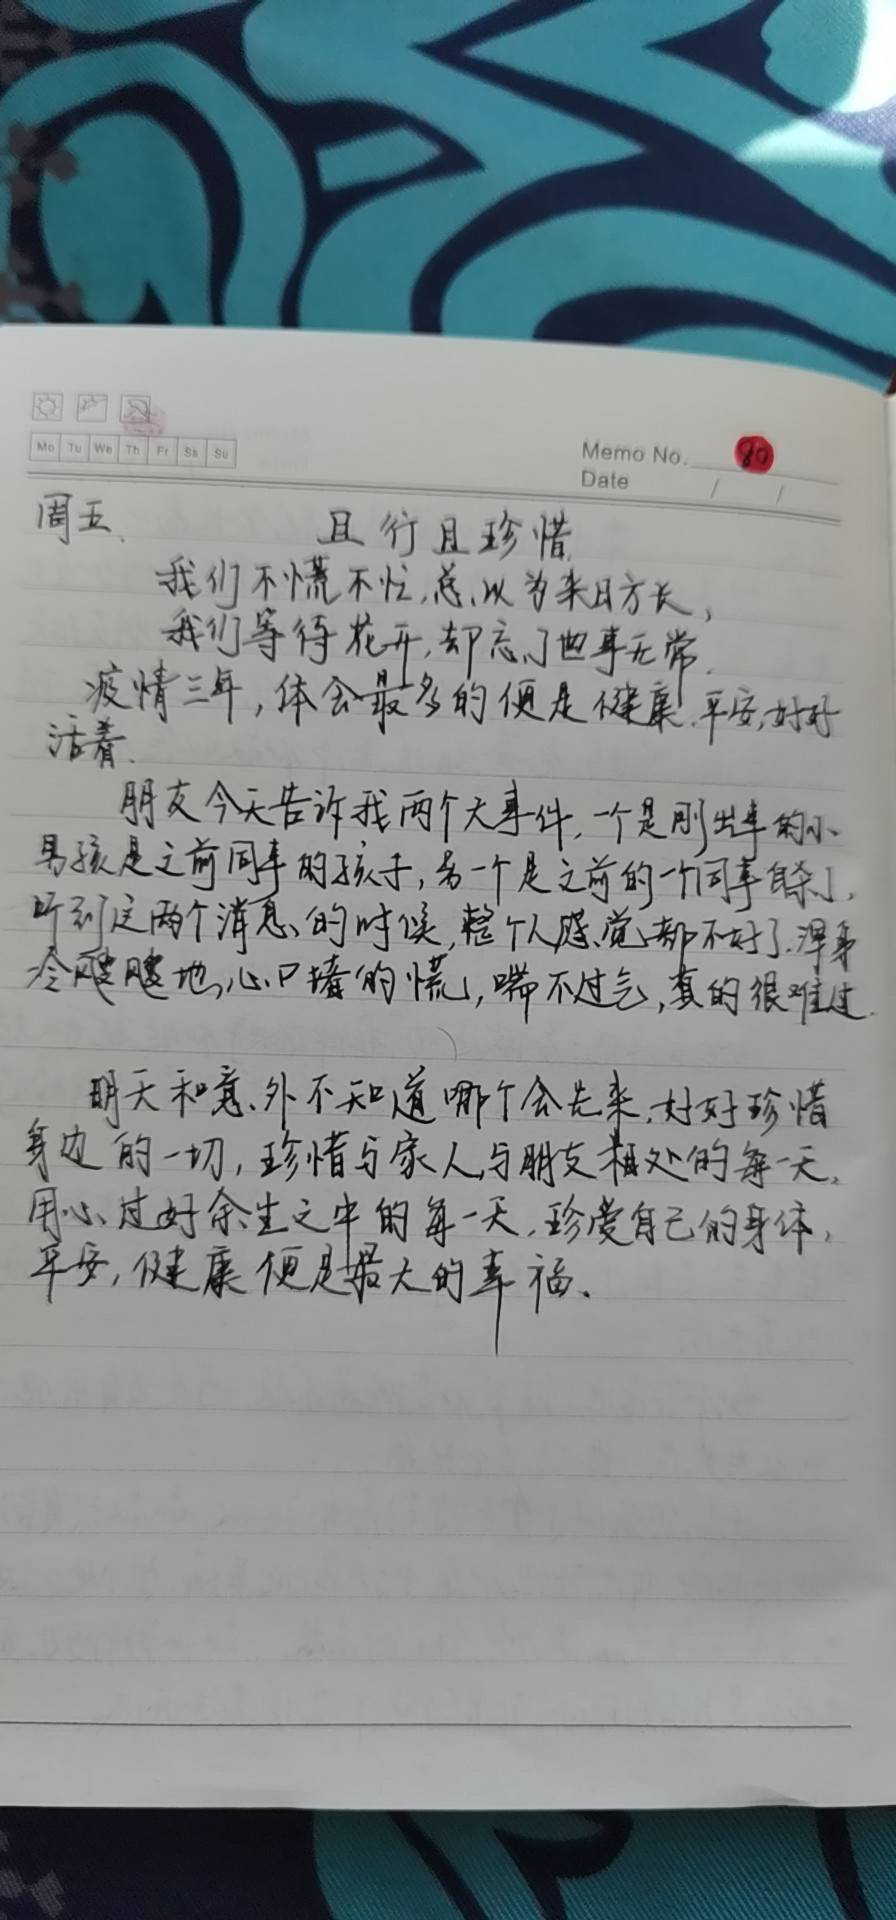 Mo Tu We Th Fr Sa Su
Memo No. 80
Date / /
周五、 且行且珍惜
我们不慌不忙,总以为来日方长,
我们等待花开,却忘了世事无常.
疫情三年,体会最多的便是健康.平安,好好
活着.
朋友今天告诉我两个大事件,一个是刚出事的小
男孩是之前同事的孩子,另一个是之前的一个同事自杀了,
听到这两个消息的时候,整个人感觉都不好了.浑身
冷飕飕地,心口堵的慌,喘不过气,真的很难过.
明天和意外不知道哪个会先来.好好珍惜
身边的一切,珍惜与家人与朋友相处的每一天,
用心过好余生之中的每一天.珍爱自己的身体,
平安,健康便是最大的幸福.